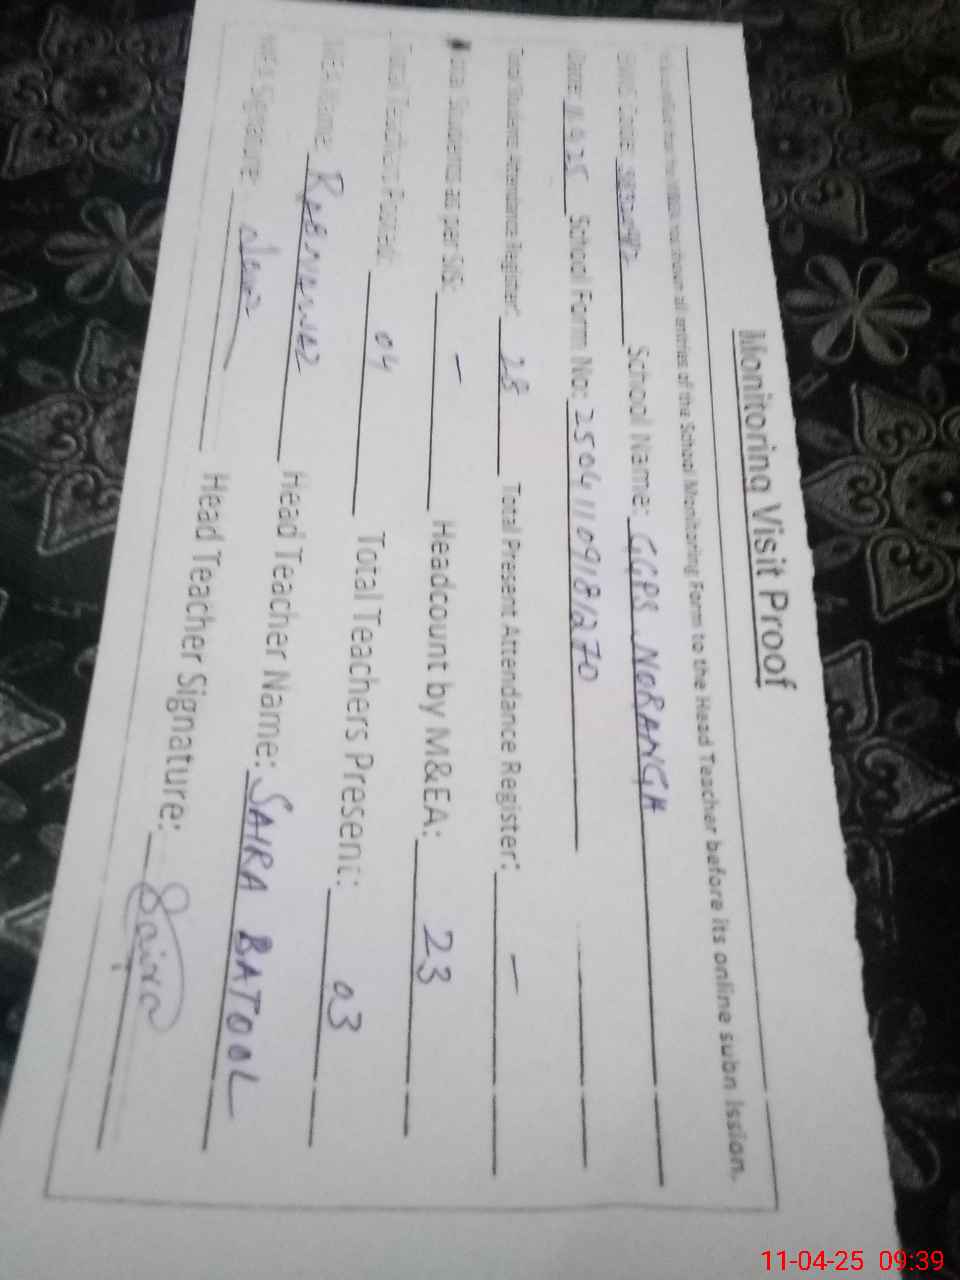 Monitoring Visit Proof
has shown all entries of the School Monitoring Form to the Head Teacher before its online subn ission.
EMIS Code: School Name: GGPS NORANGA
Date: 11.4.25 School Form No: 25041109181270
Total Students Attendance Register: 28 Total Present Attendance Register: –
Total Students as per SIS: – Headcount by M&EA: 23
Total Teachers Posted: 04 Total Teachers Present: 03
MEA Name: RABNAWAZ Head Teacher Name: SAIRA BATOOL
MEA Signature: Head Teacher Signature: Saira
11-04-25 09:39